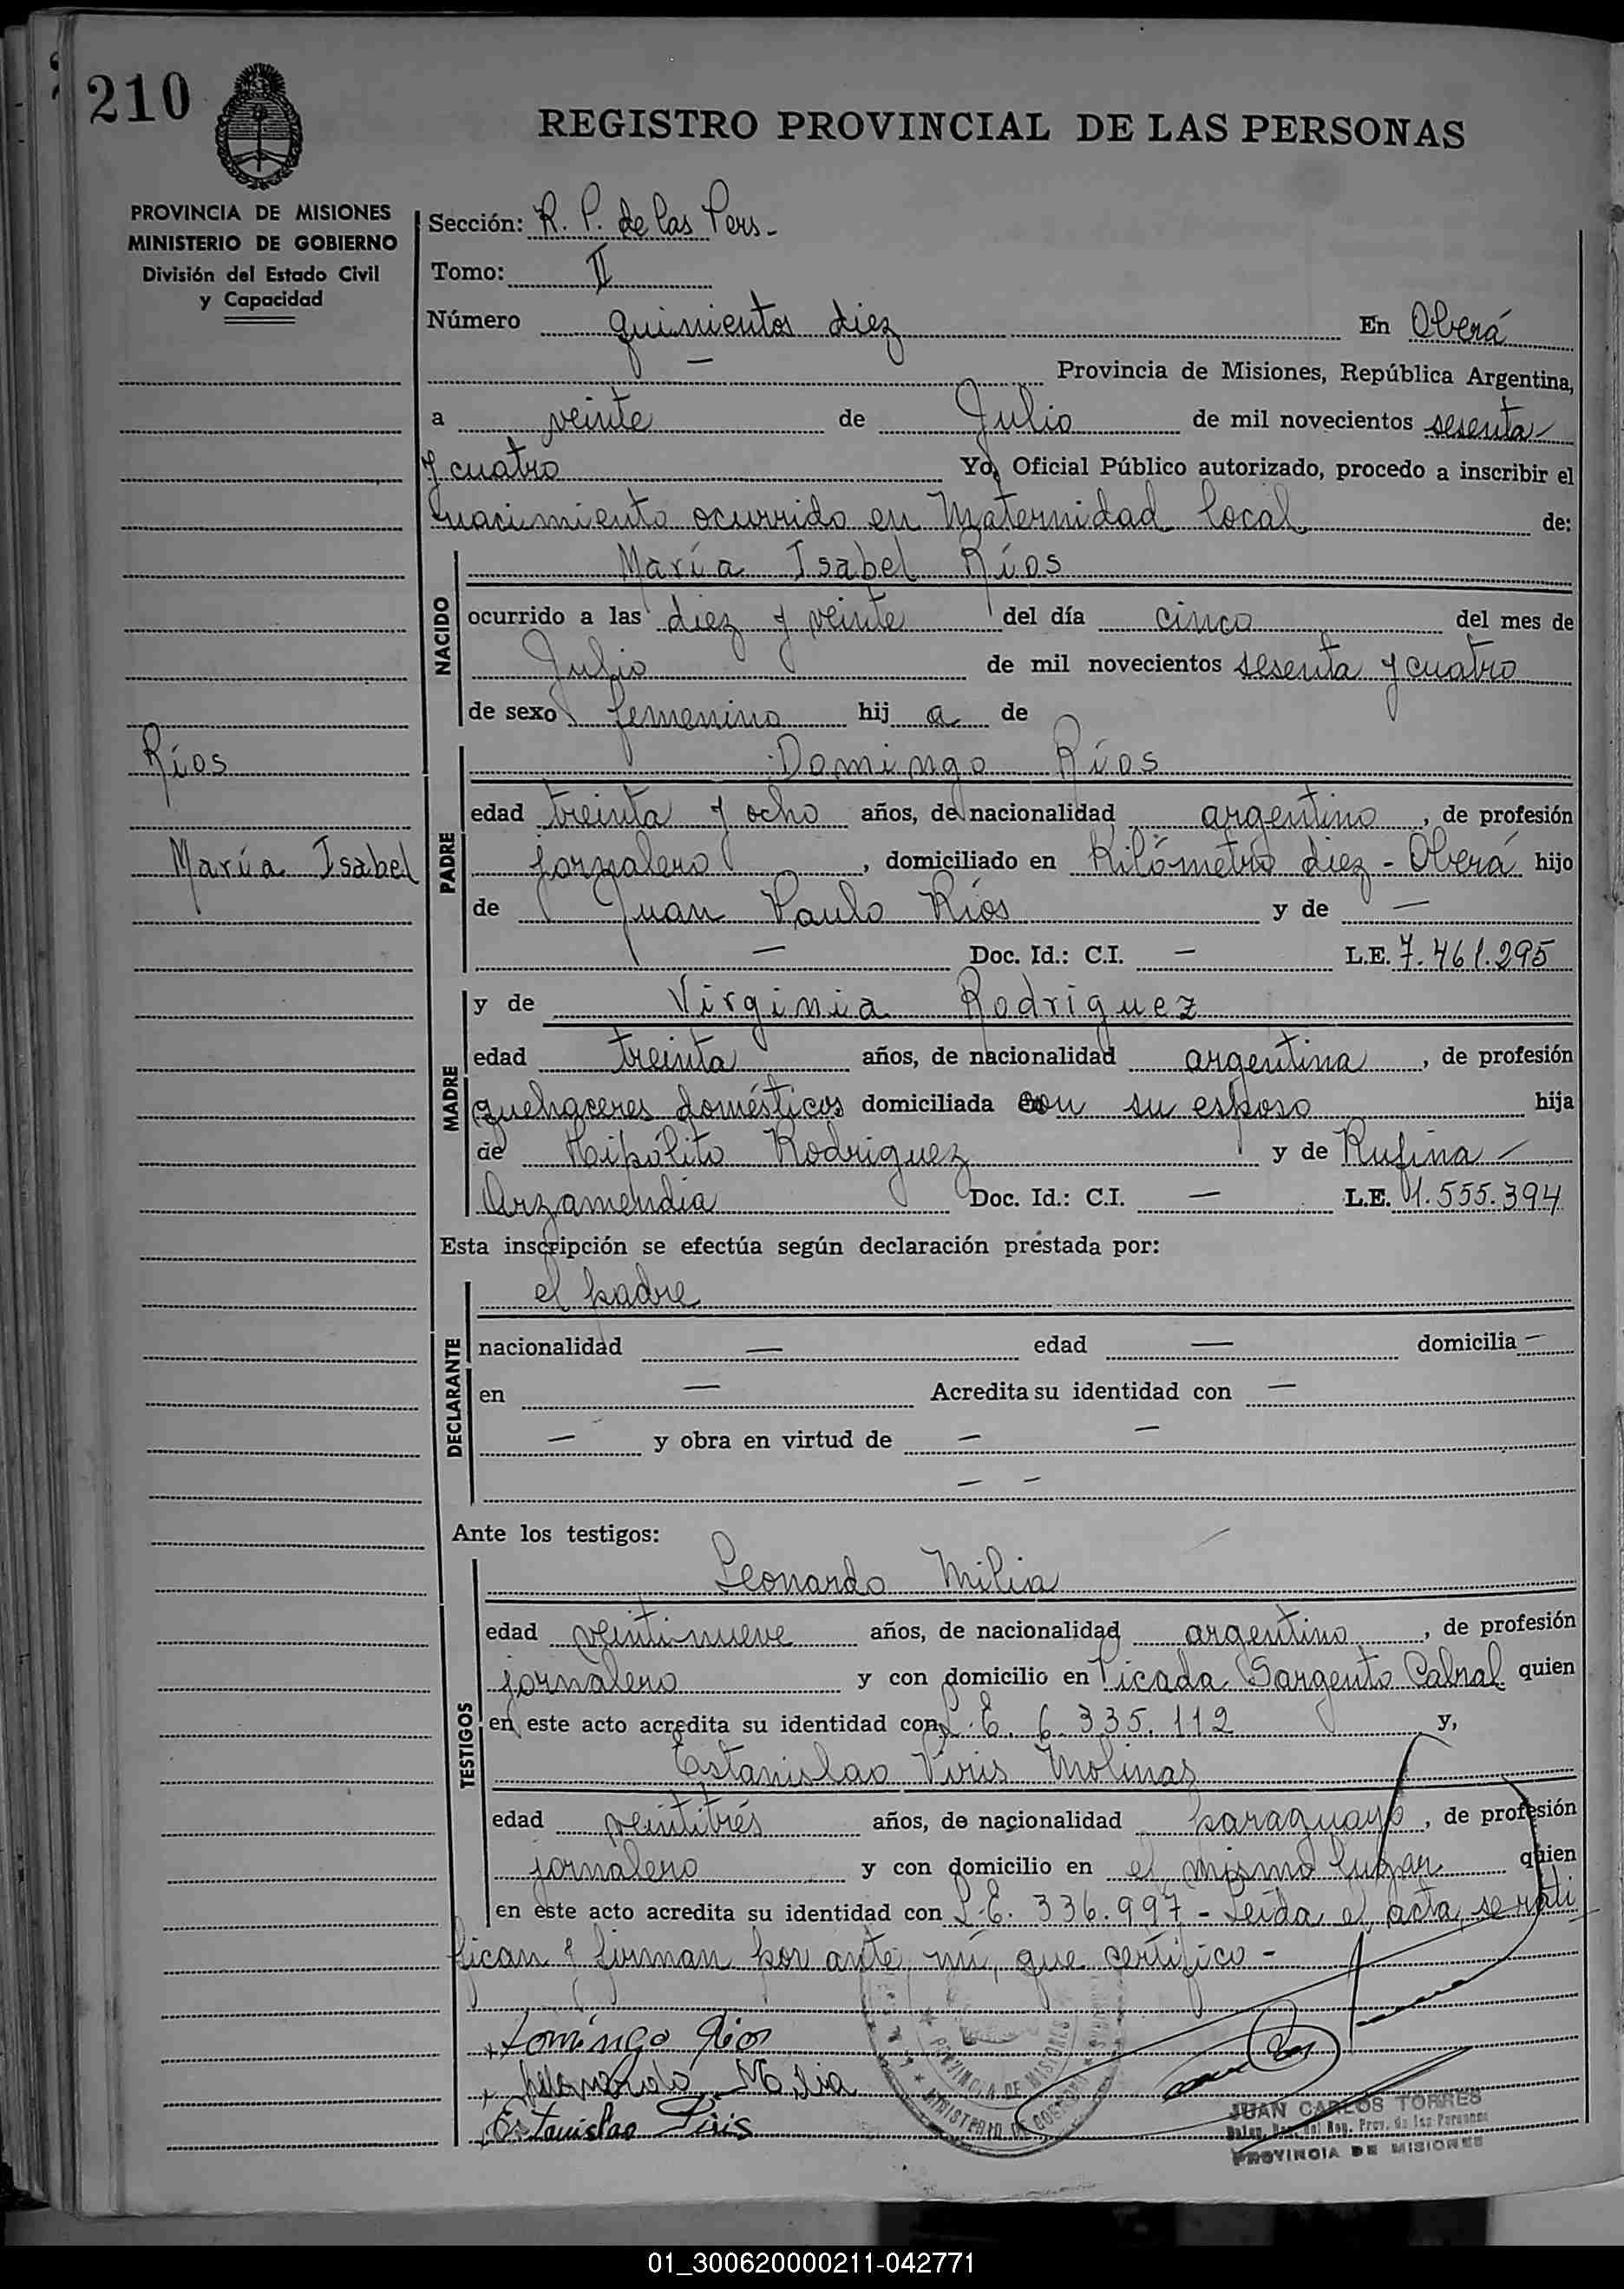 210
REGISTRO PROVINCIAL DE LAS PERSONAS
PROVINCIA DE MISIONES
MINISTERIO DE GOBIERNO
División del Estado Civil
y Capacidad
Sección: R. P. de las Pers.-
Tomo: II
Número quinientos diez En Oberá
— Provincia de Misiones, República Argentina,
a veinte de Julio de mil novecientos sesenta
y cuatro Yo, Oficial Público autorizado, procedo a inscribir el
nacimiento ocurrido en Maternidad local de:
NACIDO
María Isabel Ríos
ocurrido a las diez y veinte del día cinco del mes de
Julio de mil novecientos sesenta y cuatro
de sexo femenino hij a de
Ríos
María Isabel
PADRE
Domingo Ríos
edad treinta y ocho años, de nacionalidad argentino, de profesión
jornalero, domiciliado en Kilómetro diez - Oberá hijo
de Juan Paulo Ríos y de —
— Doc. Id.: C.I. — L.E. 7.461.295
MADRE
y de Virginia Rodriguez
edad treinta años, de nacionalidad argentina, de profesión
quehaceres domésticos domiciliada con su esposo hija
de Hipólito Rodriguez y de Rufina —
Arzamendia Doc. Id.: C.I. — L.E. 1.555.394
Esta inscripción se efectúa según declaración prestada por:
DECLARANTE
el padre
nacionalidad — edad — domicilia —
en — Acredita su identidad con —
— y obra en virtud de — —
— —
Ante los testigos:
TESTIGOS
Leonardo Milia
edad veintinueve años, de nacionalidad argentino, de profesión
jornalero y con domicilio en Picada Sargento Cabral quien
en este acto acredita su identidad con L.E. 6.335.112 y,
Estanislao Piris Molinas
edad veintitrés años, de nacionalidad paraguayo, de profesión
jornalero y con domicilio en el mismo lugar quien
en este acto acredita su identidad con L.E. 336.997 - Leída el acta, se rati
fican y firman por ante mí, que certifico -
Domingo Rios
Leonardo Milia
Estanislao Piris
PROVINCIA DE MISIONES
MINISTERIO DE GOBIERNO
JUAN CARLOS TORRES
Reg. Prov. de las Personas
PROVINCIA DE MISIONES
01_300620000211-042771